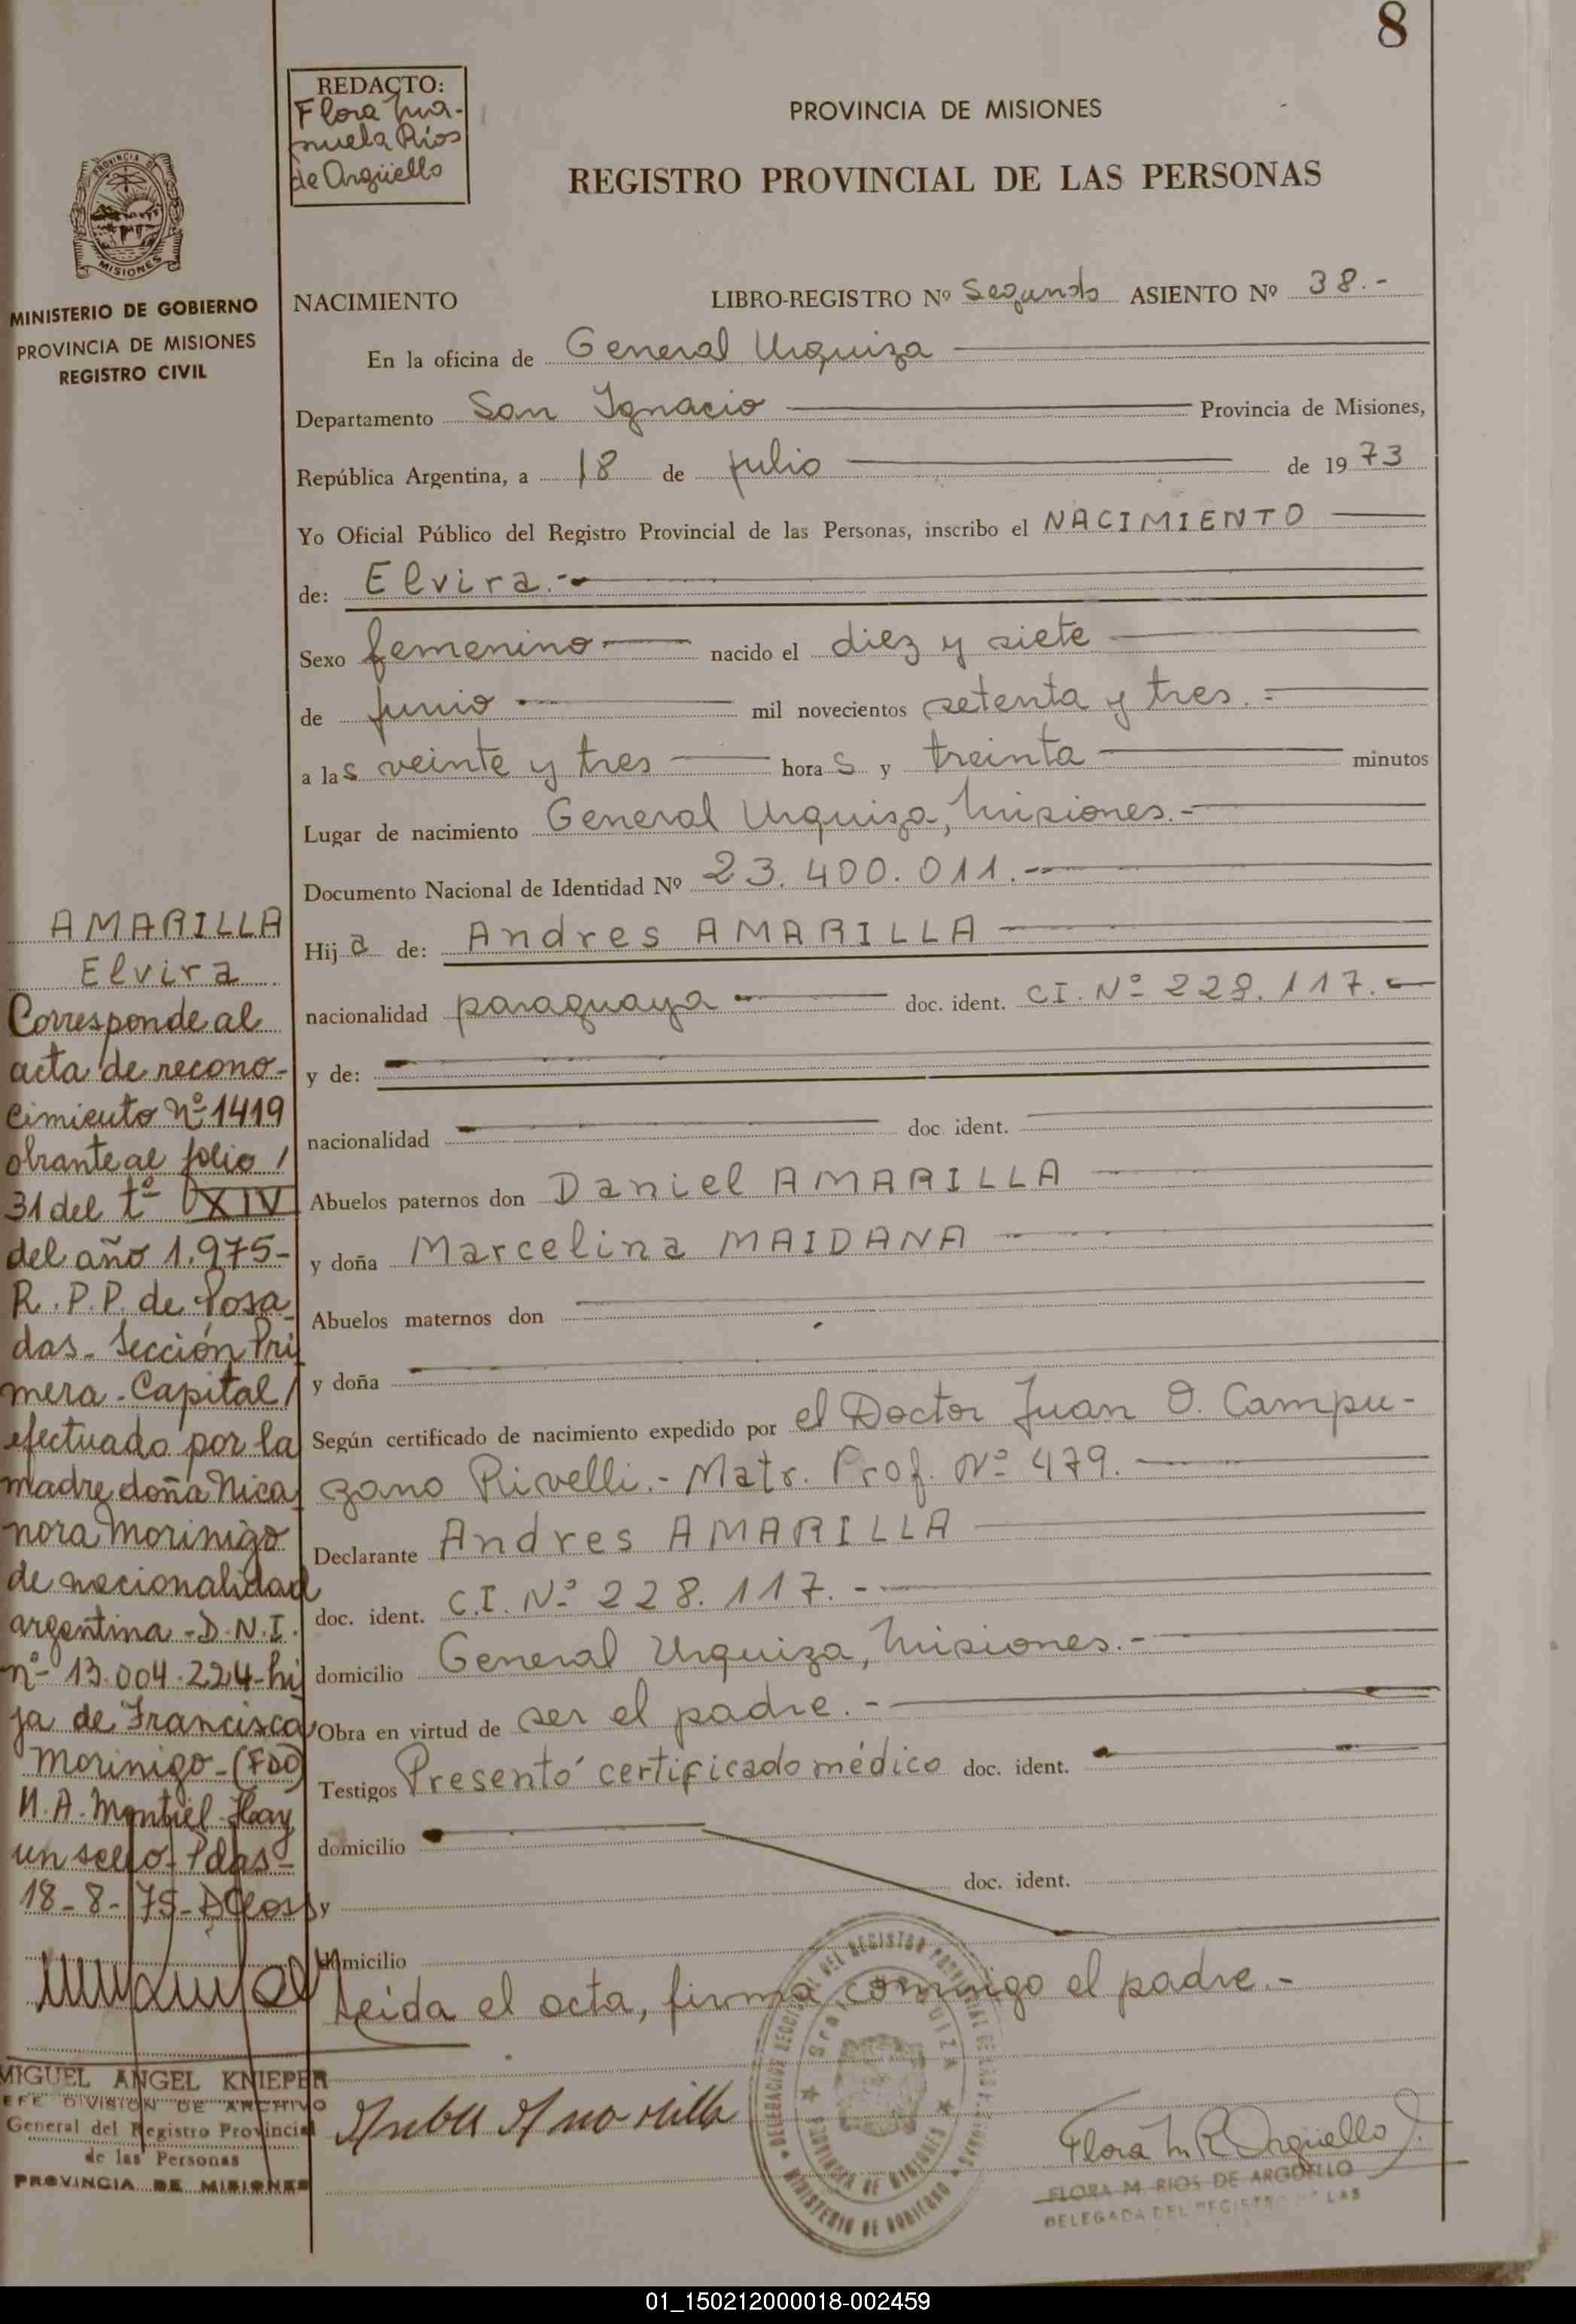 8
REDACTO:
Flora Ma-
nuela Ríos
de Argüello
PROVINCIA DE MISIONES
REGISTRO PROVINCIAL DE LAS PERSONAS
PROVINCIA DE
MISIONES
MINISTERIO DE GOBIERNO
PROVINCIA DE MISIONES
REGISTRO CIVIL
NACIMIENTO LIBRO-REGISTRO Nº Segundo ASIENTO Nº 38.-
En la oficina de General Urquiza
Departamento San Ignacio Provincia de Misiones,
República Argentina, a 18 de julio de 1973
Yo Oficial Público del Registro Provincial de las Personas, inscribo el NACIMIENTO
de: Elvira.-
Sexo femenino nacido el diez y siete
de junio mil novecientos setenta y tres.-
a las veinte y tres horas y treinta minutos
Lugar de nacimiento General Urquiza, Misiones.-
Documento Nacional de Identidad Nº 23.400.011.-
Hija de: Andres AMARILLA
nacionalidad paraguaya doc. ident. CI. Nº 228.117.-
y de:
nacionalidad doc. ident.
Abuelos paternos don Daniel AMARILLA
y doña Marcelina MAIDANA
Abuelos maternos don
y doña
Según certificado de nacimiento expedido por el Doctor Juan O. Campu-
zano Rivelli.- Matr. Prof. Nº 479.
Declarante Andres AMARILLA
doc. ident. C.I. Nº 228.117.-
domicilio General Urquiza, Misiones.-
Obra en virtud de ser el padre.-
Testigos Presentó certificado médico doc. ident.
domicilio
doc. ident.
y
domicilio
Leida el acta, firma conmigo el padre.-
AMARILLA
Elvira
Corresponde al
acta de recono-
cimiento Nº 1419
obrante al folio /
31 del tº XIV
del año 1.975-
R.P.P. de Posa-
das- Sección Pri
mera-Capital/
efectuado por la
madre doña Nica
nora Morinigo
de nacionalidad
argentina-D.N.I.
nº 13.004.224-hi
ja de Francisca
Morinigo-(FDO)
M.A. Montiel-Hay
un sello-Pdas-
18-8-75-
MIGUEL ANGEL KNIEPER
JEFE DIVISION DE ARCHIVO
General del Registro Provincial
de las Personas
PROVINCIA DE MISIONES
Flora M R Argüello
FLORA M. RIOS DE ARGÜELLO
DELEGADA DEL REGISTRO LAS
PROVINCIA DE MISIONES
MINISTERIO DE GOBIERNO
01_150212000018-002459